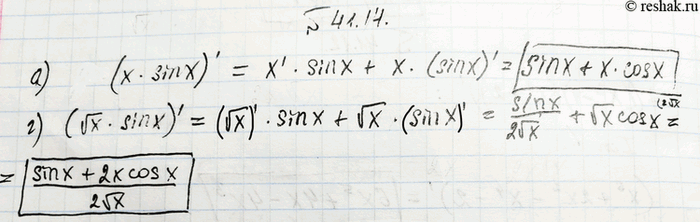 © reshak.ru
№ 41.17.
а) (x · sinx)' = x' · sinx + x · (sinx)' = sinx + x · cosx
г) (√x · sinx)' = (√x)' · sinx + √x · (sinx)' = sinx/2√x + √x cosx (2√x =
= (sinx + 2x cosx)/2√x